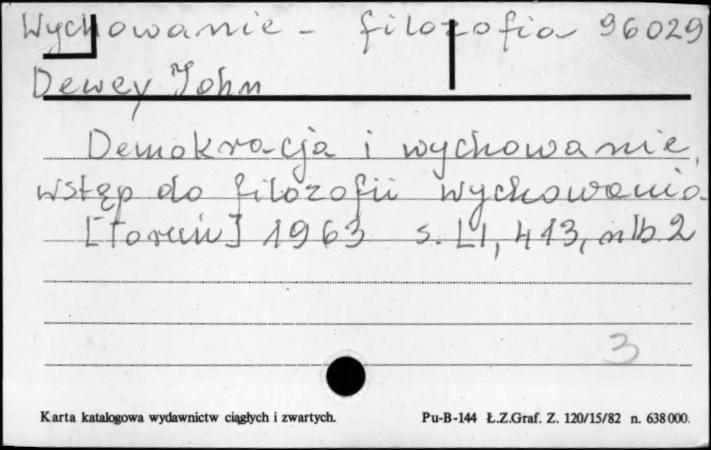 Wychowanie - filozofia 96029
Dewey John
Demokracja i wychowanie,
wstęp do filozofii wychowania.
[Toruń] 1963 s. LI, 413, nlb. 2
3
Karta katalogowa wydawnictw ciągłych i zwartych. Pu-B-144 Ł.Z.Graf. Z. 120/15/82 n. 638 000.